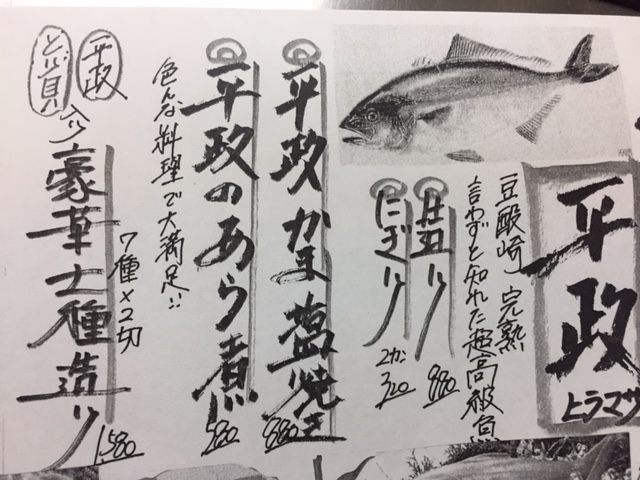 平政
ヒラマサ
豆酘崎 完熟
言わずと知れた超高級魚
造り 880
にぎり 2カン 320
平政かま塩焼き 880
平政のあら煮 580
色んな料理で大満足!!
平政
とり貝
入り
豪華七種造り 1,580
7種×2切